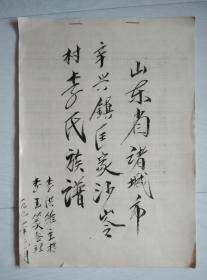 山东省诸城市
辛兴镇匡家沙岺
村李氏族谱
李洪维主持
李玉